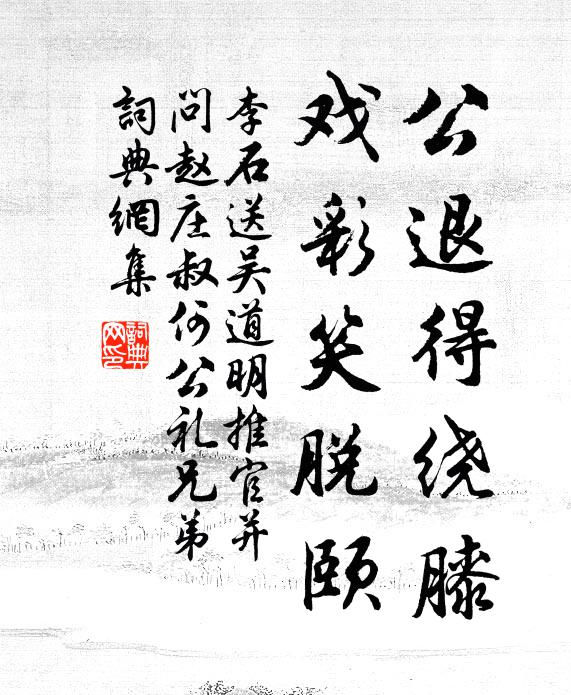 公退得绕膝
戏彩笑脱颐
李石送吴道明推官并
问赵庄叔何公礼兄弟
詞典網集
詞典
网印